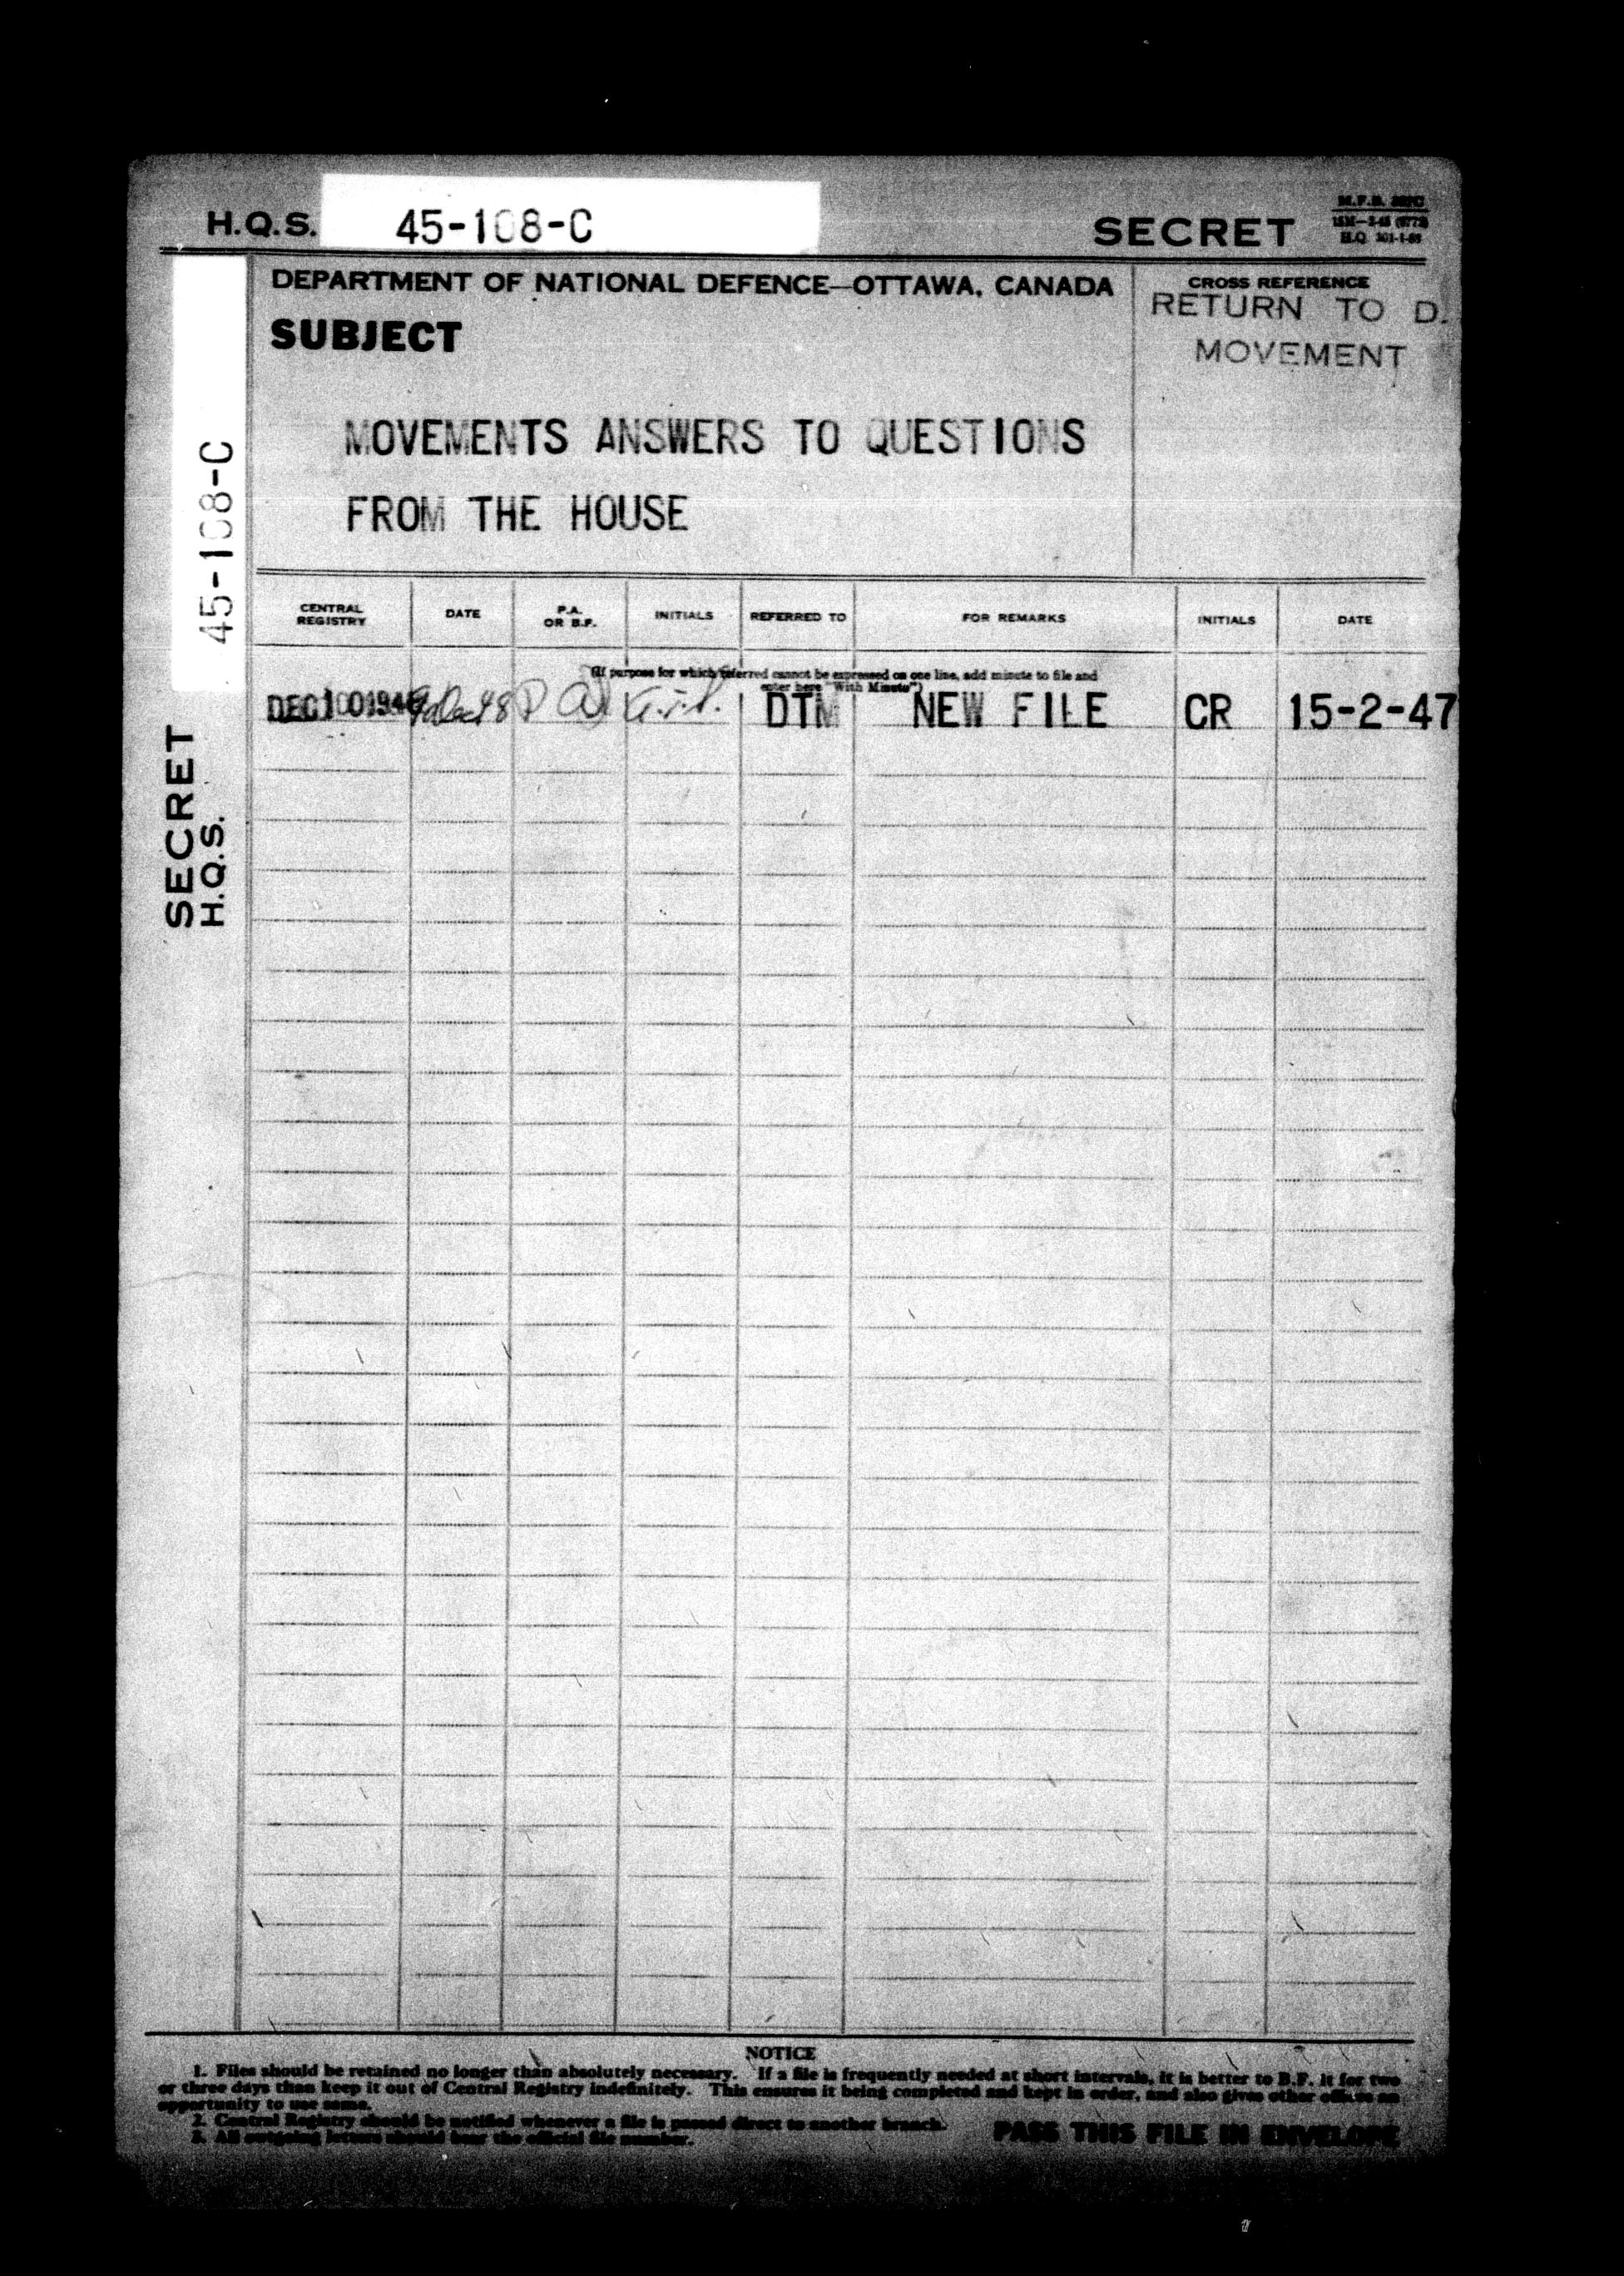 H.Q.S. 45-108-C
SECRET
H.Q. 301-1-65
DEPARTMENT OF NATIONAL DEFENCE—OTTAWA, CANADA
SUBJECT
MOVEMENTS ANSWERS TO QUESTIONS
FROM THE HOUSE
CROSS REFERENCE
RETURN TO D.
MOVEMENT
45-108-C
SECRET
H.Q.S.
CENTRAL REGISTRY
DATE
P.A. OR B.F.
INITIALS
REFERRED TO
FOR REMARKS
INITIALS
DATE
(If purpose for which referred cannot be expressed on one line, add minute to file and
enter here "With Minute")
DEC 10 1948 9 Dec 48 P A DTM NEW FILE CR 15-2-47
NOTICE
1. Files should be retained no longer than absolutely necessary. If a file is frequently needed at short intervals, it is better to B.F. it for two
or three days than keep it out of Central Registry indefinitely. This ensures it being completed and kept in order, and also gives other offices an
opportunity to use same.
2. Central Registry should be notified whenever a file is passed direct to another branch.
3. All outgoing letters should bear the official file number.
PASS THIS FILE IN ENVELOPE